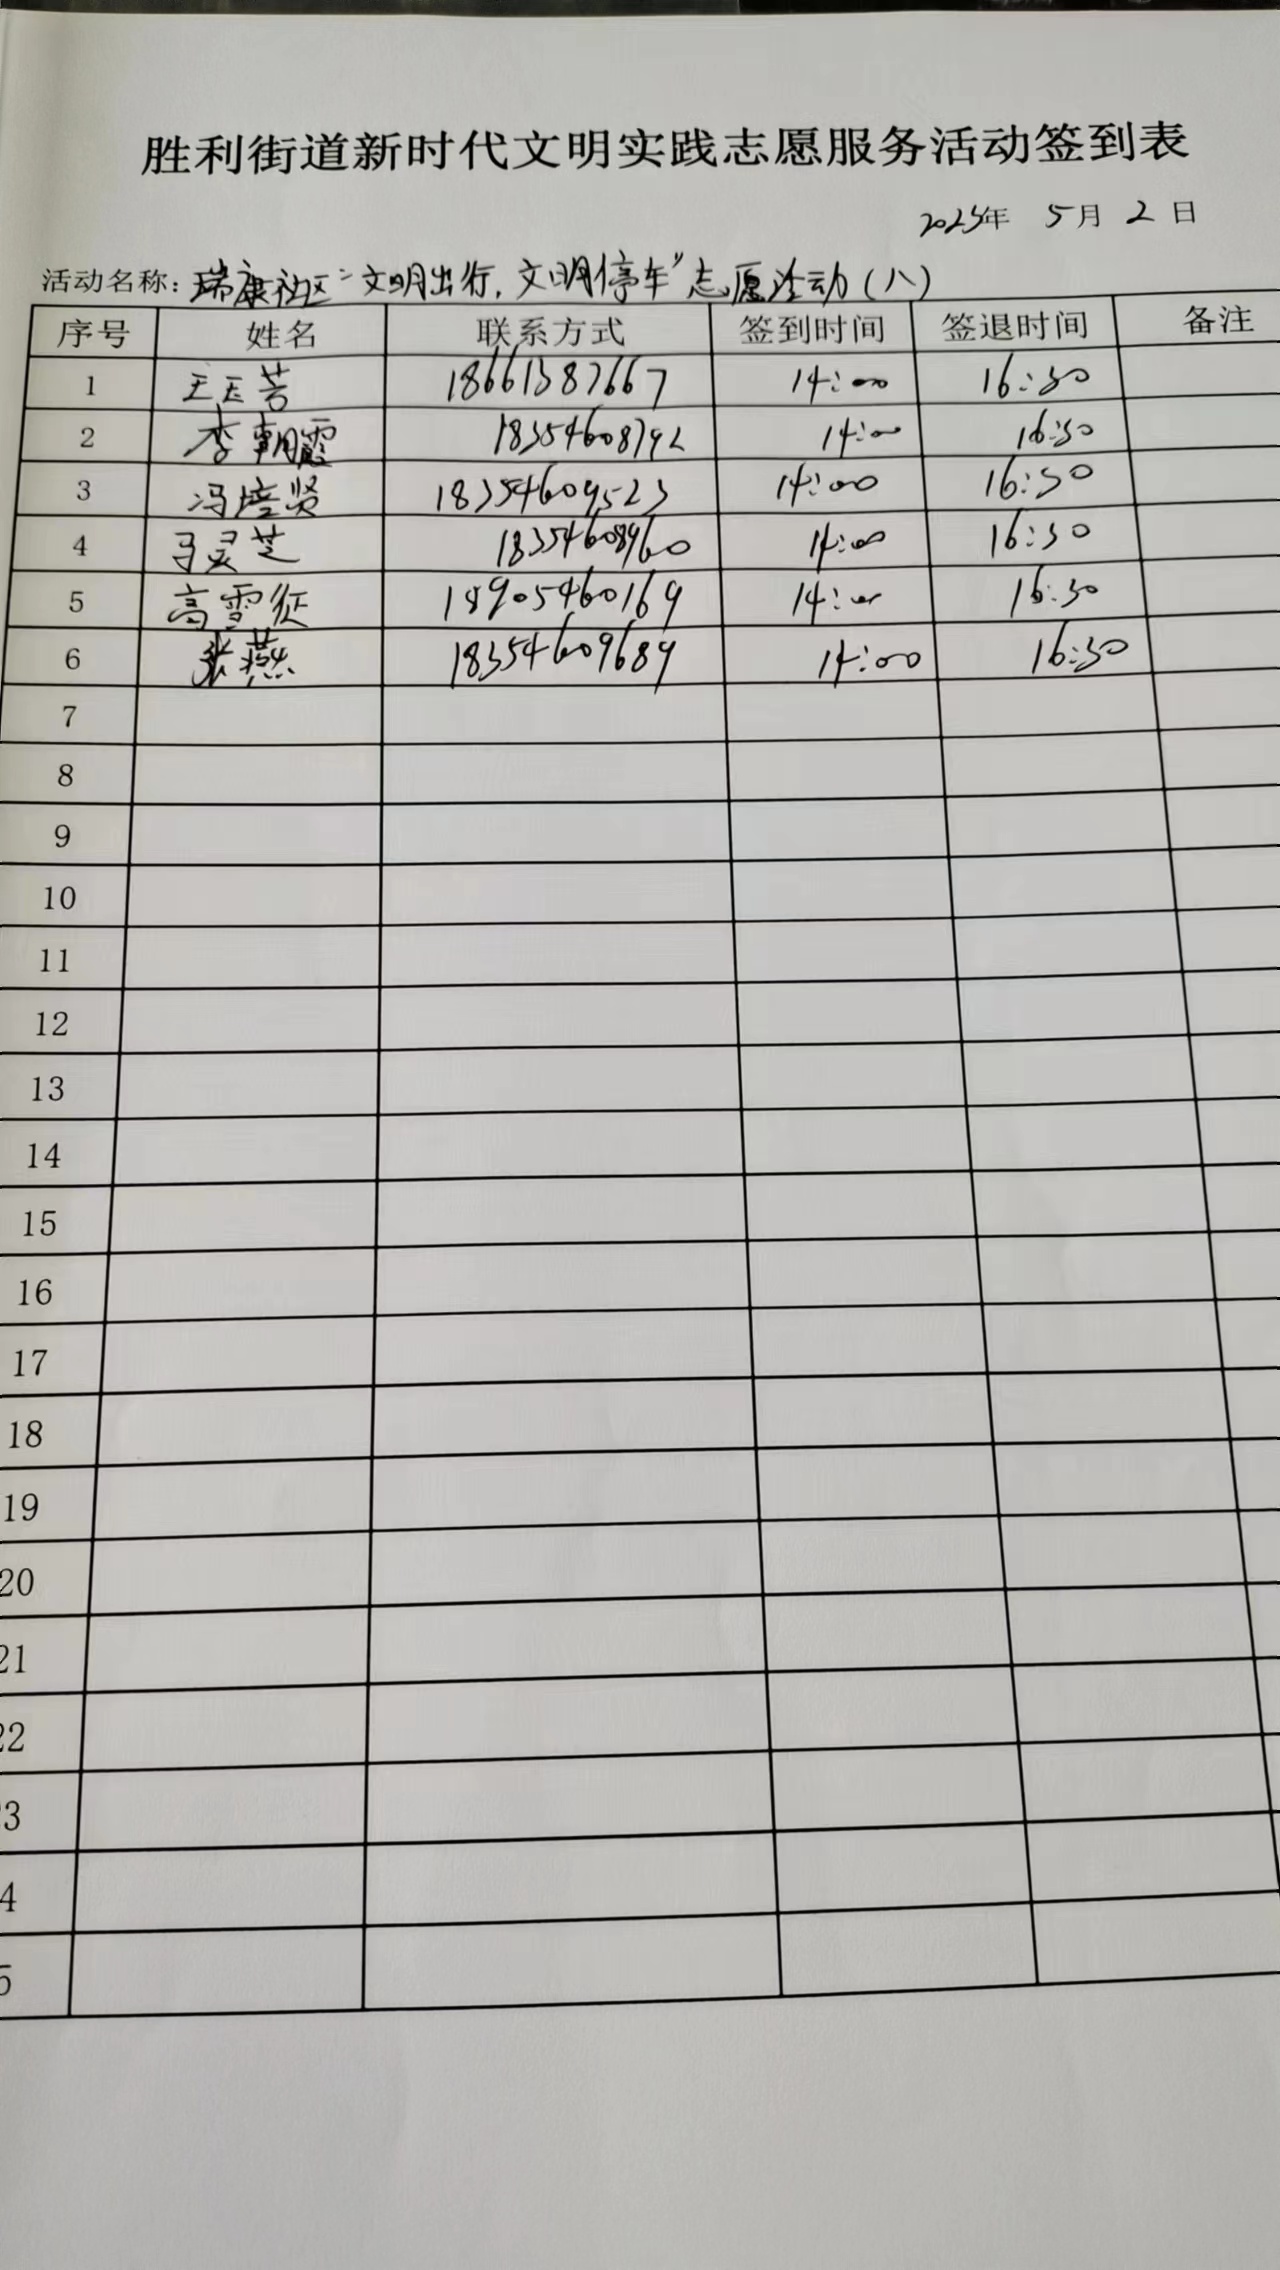 胜利街道新时代文明实践志愿服务活动签到表
2025年 5月 2日
活动名称：瑞康社区"文明出行，文明停车"志愿活动（八）
序号 姓名 联系方式 签到时间 签退时间 备注
1 王玉芳 18661387667 14:00 16:30
2 李朝霞 18354608792 14:00 16:30
3 冯培贤 18354609523 14:00 16:30
4 马灵芝 18354608960 14:00 16:30
5 高雪征 18905460169 14:00 16:30
6 张燕 18354609689 14:00 16:30
7
8
9
10
11
12
13
14
15
16
17
18
19
20
21
22
3
4
5